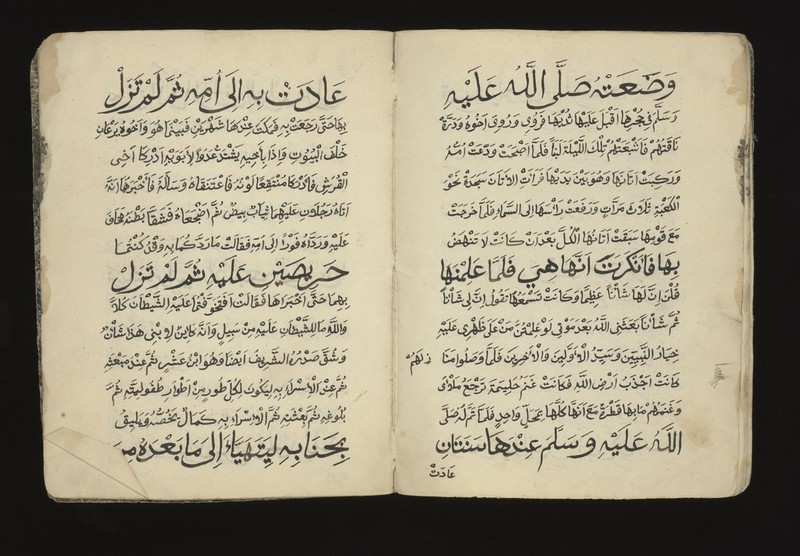 وَضَعَتْهُ صَلَّى اللهُ عَلَيْهِ
وَسَلَّمَ فِي حِجْرِهَا اَقْبَلَ عَلَيْهَا ثَدْيُهَا فَرُوِيَ وَرُوِيَ اَخُوهُ وَدَرَّتْ
نَاقَتُهُمْ فَاَشْبَعَتْهُمْ تِلْكَ اللَّيْلَةَ لَبَنًا فَلَمَّا اَصْبَحَتْ وَدَّعَتْ اُمَّهُ
وَرَكِبَتْ اَتَانَهَا وَهُوَ بَيْنَ يَدَيْهَا فَرَاَتْ الْاَتَانَ سَجَدَتْ نَحْوَ
الْكَعْبَةِ ثَلَاثَ مَرَّاتٍ وَرَفَعَتْ رَاْسَهَا اِلَى السَّمَاءِ فَلَمَّا خَرَجَتْ
مَعَ قَوْمِهَا سَبَقَتْ اَتَانُهَا الْكُلَّ بَعْدَ اَنْ كَانَتْ لَا تَنْهَضُ
بِهَا فَاَنْكَرْنَ اَنَّهَا هِيَ فَلَمَّا عَلِمْنَهَا
قُلْنَ اِنَّ لَهَا شَأْنًا عَظِيمًا وَكَانَتْ تَسْمَعُهَا تَقُولُ اِنَّ لِي شَأْنًا
ثُمَّ شَأْنًا بَعَثَنِي اللهُ بَعْدَ مَوْتِي لَوْ عَلِمْتُنَّ مَنْ عَلَى ظَهْرِي عَلَيْهِ
خِيَارُ النَّبِيِّينَ وَسَيِّدُ الْاَوَّلِينَ وَالْاٰخِرِينَ فَلَمَّا وَصَلُوا مَنَازِلَهُمْ
كَانَتْ اَجْدَبَ اَرْضِ اللهِ فَكَانَتْ غَنَمُ حَلِيمَةَ تَرْجِعُ مَلْأَى
وَغَنَمُهُمْ مَا بِهَا قَطْرَةٌ مَعَ اَنَّهَا كُلَّهَا بِمَحَلٍّ وَاحِدٍ فَلَمَّا تَمَّ لَهُ صَلَّى
اللهُ عَلَيْهِ وَسَلَّمَ عِنْدَهَا سَنَتَانِ
عَادَتْ
عَادَتْ بِهِ اِلَى اُمِّهِ ثُمَّ لَمْ تَزَلْ
بِهَا حَتَّى رَجَعَتْ بِهِ فَمَكَثَ عِنْدَهَا شَهْرَيْنِ فَبَيْنَمَا هُوَ وَاَخُوهُ يَرْعَانِ
خَلْفَ الْبُيُوتِ وَاِذَا بِاَخِيهِ يَشْتَدُّ عَدْوًا لِاَبَوَيْهِ اَدْرِكَا اَخِي
الْقُرَشِيَّ فَاَدْرَكَا مُنْتَقِعًا لَوْنُهُ فَاعْتَنَقَاهُ وَسَاَلَاهُ فَاَخْبَرَهُمَا اَنَّهُ
اَتَاهُ رَجُلَانِ عَلَيْهِمَا ثِيَابٌ بِيضٌ ثُمَّ اَضْجَعَاهُ فَشَقَّا بَطْنَهُ فَخَافَا
عَلَيْهِ وَرَدَّاهُ فَوْرًا اِلَى اُمِّهِ فَقَالَتْ مَا رَدَّكُمَا بِهِ وَقَدْ كُنْتُمَا
حَرِيصَيْنِ عَلَيْهِ ثُمَّ لَمْ تَزَلْ
بِهِمَا حَتَّى اَخْبَرَاهَا فَقَالَتْ اَفَتَخَوَّفْتُمَا عَلَيْهِ الشَّيْطَانَ كَلَّا
وَاللهِ مَا لِلشَّيْطَانِ عَلَيْهِ مِنْ سَبِيلٍ وَاِنَّهُ كَائِنٌ لِابْنِي هٰذَا شَأْنٌ
وَشُقَّ صَدْرُهُ الشَّرِيفُ اَيْضًا وَهُوَ ابْنُ عَشْرٍ ثُمَّ عِنْدَ مَبْعَثِهِ
ثُمَّ عِنْدَ الْاِسْرَاءِ بِهِ لِيَكُونَ لِكُلِّ طَوْرٍ مِنْ اَطْوَارِ طُفُولِيَّتِهِ ثُمَّ
بُلُوغِهِ ثُمَّ بَعْثَتِهِ ثُمَّ الْاِسْرَاءِ بِهِ كَمَالٌ يَخُصُّهُ وَيَلِيقُ
بِجَنَابِهِ لِيَتَهَيَّاَ اِلَى مَا بَعْدَهُ مِنْ